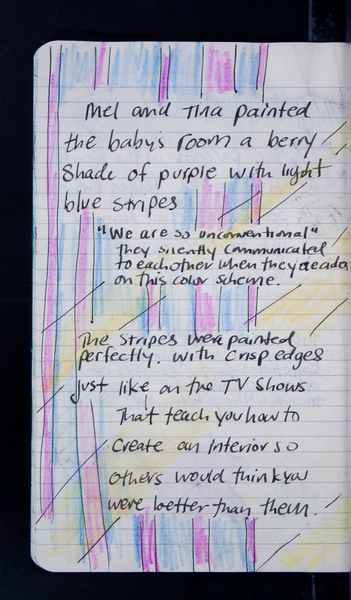 Mel and Tina painted
the baby's room a berry
Shade of purple with light
blue stripes
"We are so "unconventional"
they silently communicated
to eachother when they decided
on this color scheme.
The stripes were painted
perfectly. with crisp edges
Just like on the TV shows
That teach you how to
Create an Interior so
others would think you
were better than them.